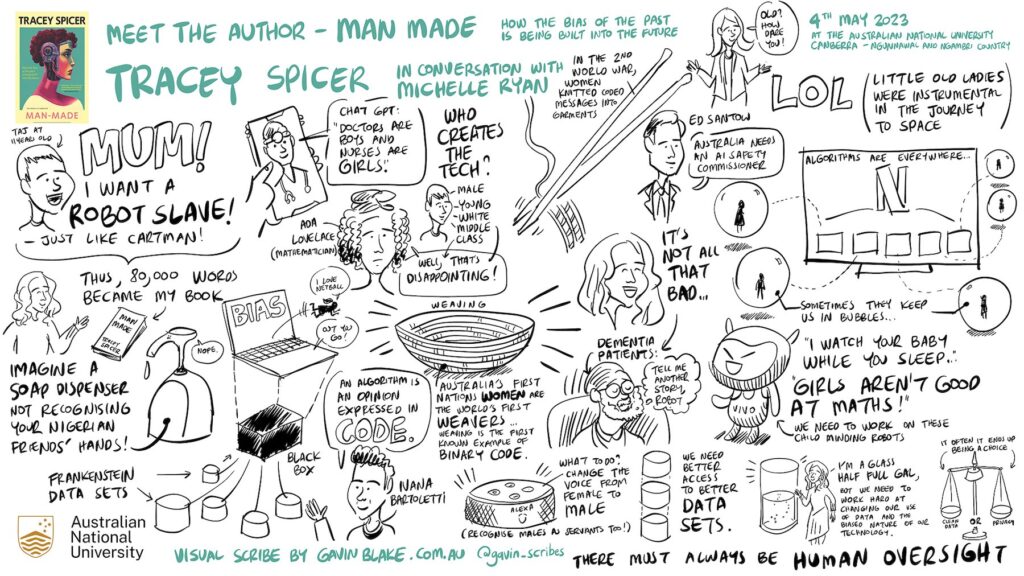 TRACEY SPICER
MAN-MADE
MEET THE AUTHOR - MAN MADE
HOW THE BIAS OF THE PAST
IS BEING BUILT INTO THE FUTURE
TRACEY SPICER
IN CONVERSATION WITH
MICHELLE RYAN
4TH MAY 2023
AT THE AUSTRALIAN NATIONAL UNIVERSITY
CANBERRA - NGUNNAWAL AND NGAMBRI COUNTRY
TAJ AT
11 YEARS OLD
MUM!
I WANT A
ROBOT SLAVE!
- JUST LIKE CARTMAN!
CHAT GPT:
"DOCTORS ARE
BOYS AND
NURSES ARE
GIRLS."
WHO
CREATES
THE
TECH?
- MALE
- YOUNG
- WHITE
MIDDLE
CLASS
ADA
LOVELACE
(MATHEMATICIAN)
WELL, THAT'S
DISAPPOINTING!
IN THE 2ND
WORLD WAR,
WOMEN
KNITTED CODED
MESSAGES INTO
GARMENTS
OLD?
HOW
DARE
YOU!
LOL
LITTLE OLD LADIES
WERE INSTRUMENTAL
IN THE JOURNEY
TO SPACE
ED SANTOW
AUSTRALIA NEEDS
AN AI SAFETY
COMMISSIONER
ALGORITHMS ARE EVERYWHERE...
N
SOMETIMES THEY KEEP
US IN BUBBLES...
THUS, 80,000 WORDS
BECAME MY BOOK
MAN
MADE
TRACEY
SPICER
NOPE.
IMAGINE A
SOAP DISPENSER
NOT RECOGNISING
YOUR NIGERIAN
FRIENDS' HANDS!
BIAS
I LOVE
NETBALL
OUT YOU
GO!
BLACK
BOX
FRANKENSTEIN
DATA SETS
WEAVING
AN ALGORITHM IS
AN OPINION
EXPRESSED IN
CODE.
NANA
BARTOLETTI
"AUSTRALIA'S FIRST
NATIONS WOMEN ARE
THE WORLD'S FIRST
WEAVERS...
WEAVING IS THE FIRST
KNOWN EXAMPLE OF
BINARY CODE.
IT'S
NOT ALL
THAT
BAD...
DEMENTIA
PATIENTS:
TELL ME
ANOTHER
STORY,
ROBOT
VIVO
"I WATCH YOUR BABY
WHILE YOU SLEEP..."
"GIRLS AREN'T GOOD
AT MATHS!"
WE NEED TO WORK ON THESE
CHILD MINDING ROBOTS
ALEXA
WHAT TO DO?
CHANGE THE
VOICE FROM
FEMALE TO
MALE
(RECOGNISE MALES AS SERVANTS TOO!)
WE NEED
BETTER
ACCESS
TO BETTER
DATA
SETS.
I'M A GLASS
HALF FULL GAL,
BUT WE NEED TO
WORK HARD AT
CHANGING OUR USE
OF DATA AND THE
BIASED NATURE OF OUR
TECHNOLOGY.
IT OFTEN IT ENDS UP
BEING A CHOICE
CLEAN
DATA
OR
PRIVACY
Australian
National
University
VISUAL SCRIBE BY GAVINBLAKE.COM.AU @gavin_scribes
THERE MUST ALWAYS BE HUMAN OVERSIGHT